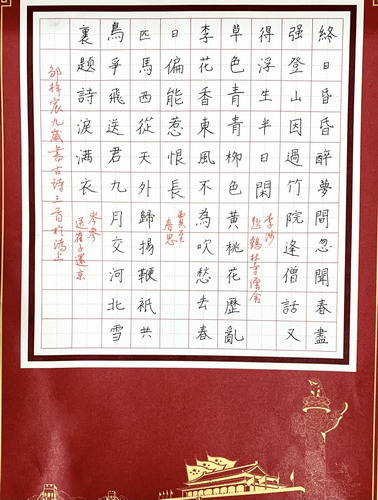 終日昏昏醉夢間忽聞春盡
强登山因過竹院逢僧話又
得浮生半日閑
李涉
題鶴林寺僧舍
草色青青柳色黃桃花歷亂
李花香東風不為吹愁去春
日偏能惹恨長
賈至
春思
匹馬西從天外歸揚鞭衹共
鳥爭飛送君九月交河北雪
裏題詩淚满衣
岑參
送崔子還京
邹梓宸九歲書古詩三首於滬上